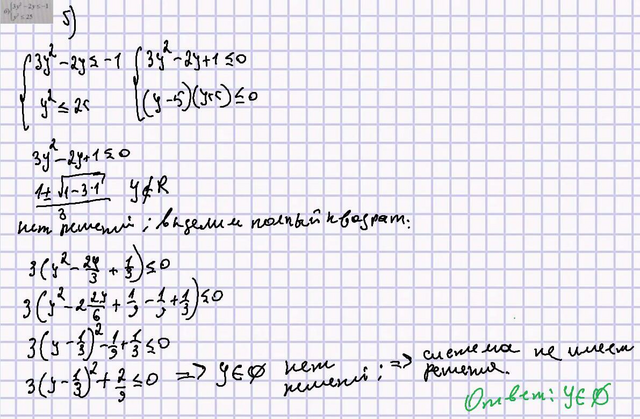 5)
{ 3y² - 2y ≤ -1 { 3y² - 2y + 1 ≤ 0
y² ≤ 25 (y - 5)(y + 5) ≤ 0
3y² - 2y + 1 ≤ 0
(1 ± √(1 - 3·1))/3 y ∉ R
нет решений; выделим полный квадрат:
3(y² - 2y/3 + 1/3) ≤ 0
3(y² - 2 2y/6 + 1/9 - 1/9 + 1/3) ≤ 0
3(y - 1/3)² - 1/9 + 1/3 ≤ 0
3(y - 1/3)² + 2/9 ≤ 0 => y ∈ ∅ нет решений; => система не имеет решения.
Ответ: y ∈ ∅